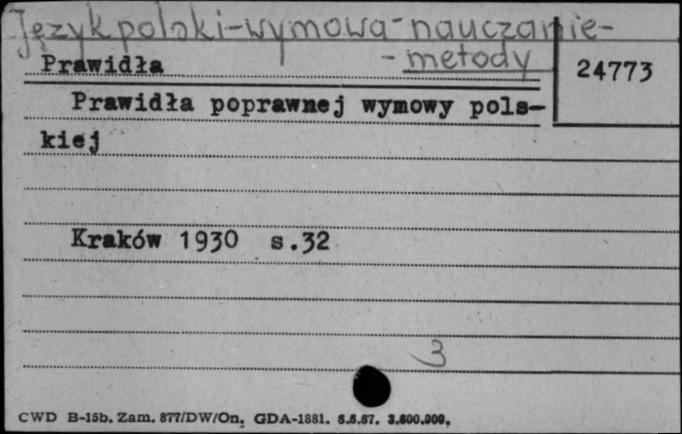 Język polski-wymowa-nauczanie-
-metody
Prawidła
24773
Prawidła poprawnej wymowy pols-
kiej
Kraków 1930 s.32
3
CWD B-15b. Zam. 877/DW/On. GDA-1881. 6.6.67. 3.600.000.